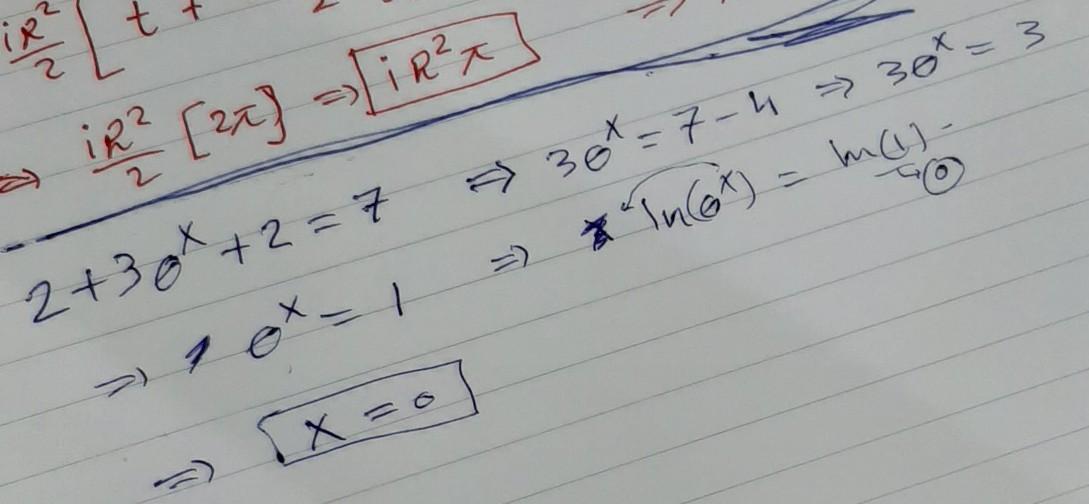 iR²/2 [ t +
⇒ iR²/2 [2π] ⇒ iR²π
2+3e^x+2=7 ⇒ 3e^x=7-4 ⇒ 3e^x=3
⇒ e^x=1 ⇒ ln(e^x) = ln(1) → 0
⇒ x=0